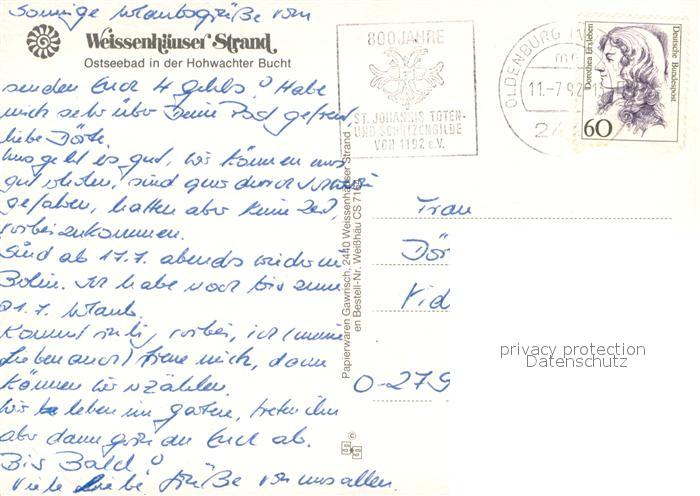 Sonnige Urlaubsgrüße vom
Weissenhäuser Strand
Ostseebad in der Hohwachter Bucht
senden Euch 4 gehls! Habe
mich sehr über Deine Post gefreut
liebe Dörte.
Uns geht es gut, wir können uns
gut sind ganz durch
gefahren, hatten aber keine Zeit,
vorbeizukommen.
Sind ab 17.7. abends wieder in
Ich habe noch bis zum
21.7. Urlaub.
Kommt ruhig vorbei, ich (meine
Lieben auch) freue mich, dann
können wir erzählen.
Wir leben im Garten, treten ihn
aber dann gern an Euch ab.
Bis Bald!
Viele Liebe Grüße von uns allen.
800 JAHRE
ST. JOHANNIS TOTEN-
UND SCHÜTZENGILDE
VON 1192 e.V.
OLDENBURG
11.-7.92
24
Dorothea Erxleben
Deutsche Bundespost
60
Papierwaren Gawrisch, 2440 Weissenhäuser Strand
en Bestell-Nr. Weißhäu CS 716
Frau
Dör
Fid
O-279
privacy protection
Datenschutz